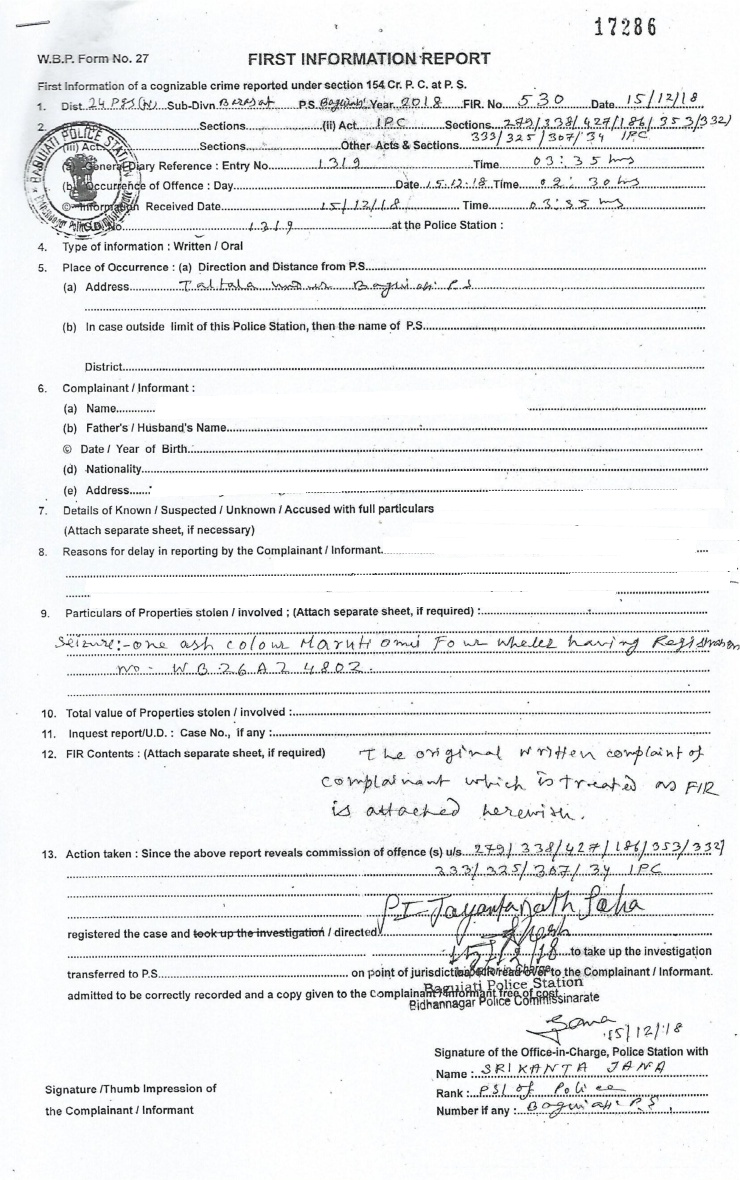 17286
W.B.P. Form No. 27
FIRST INFORMATION REPORT
First Information of a cognizable crime reported under section 154 Cr. P. C. at P. S.
1. Dist. 24 PGS(N) Sub-Divn Barasat P.S. Baguiati Year 2018 FIR. No 530 Date 15/12/18
2. Sections (ii) Act. IPC Sections 279/338/427/186/353/332/
333/325/307/34 IPC
(iii) Act Sections Other Acts & Sections
General Diary Reference : Entry No. 1319 Time 03:35 hrs
(b) Occurrence of Offence : Day Date 15.12.18 Time 02:30 hrs
© Information Received Date 15/12/18 Time 03:35 hrs
No. 1319 at the Police Station :
BAGUIATI POLICE STATION
4. Type of information : Written / Oral
5. Place of Occurrence : (a) Direction and Distance from P.S.
(a) Address Taltala under Baguiati PS
(b) In case outside limit of this Police Station, then the name of P.S.
District
6. Complainant / Informant :
(a) Name
(b) Father's / Husband's Name
© Date / Year of Birth
(d) Nationality
(e) Address
7. Details of Known / Suspected / Unknown / Accused with full particulars
(Attach separate sheet, if necessary)
8. Reasons for delay in reporting by the Complainant / Informant.
9. Particulars of Properties stolen / involved ; (Attach separate sheet, if required) :
Seizure:- one ash colour Maruti omni Four wheeler having Registration
no - WB26AZ 4802.
10. Total value of Properties stolen / involved :
11. Inquest report/U.D. : Case No., if any :
12. FIR Contents : (Attach separate sheet, if required) The original written complaint of
complainant which is treated as FIR
is attached herewith.
13. Action taken : Since the above report reveals commission of offence (s) u/s 279/338/427/186/353/332/
333/325/307/34 IPC
PI Jayanta Nath Saha
registered the case and took up the investigation / directed
15/12/18 to take up the investigation
transferred to P.S. on point of jurisdiction FIR read over to the Complainant / Informant.
admitted to be correctly recorded and a copy given to the Complainant / Informant free of cost.
Baguiati Police Station
Bidhannagar Police Commissinarate
15/12/18
Signature of the Office-in-Charge, Police Station with
Name : SRIKANTA JANA
Signature /Thumb Impression of
the Complainant / Informant
Rank : PSI of Police
Number if any : Baguiati P.S